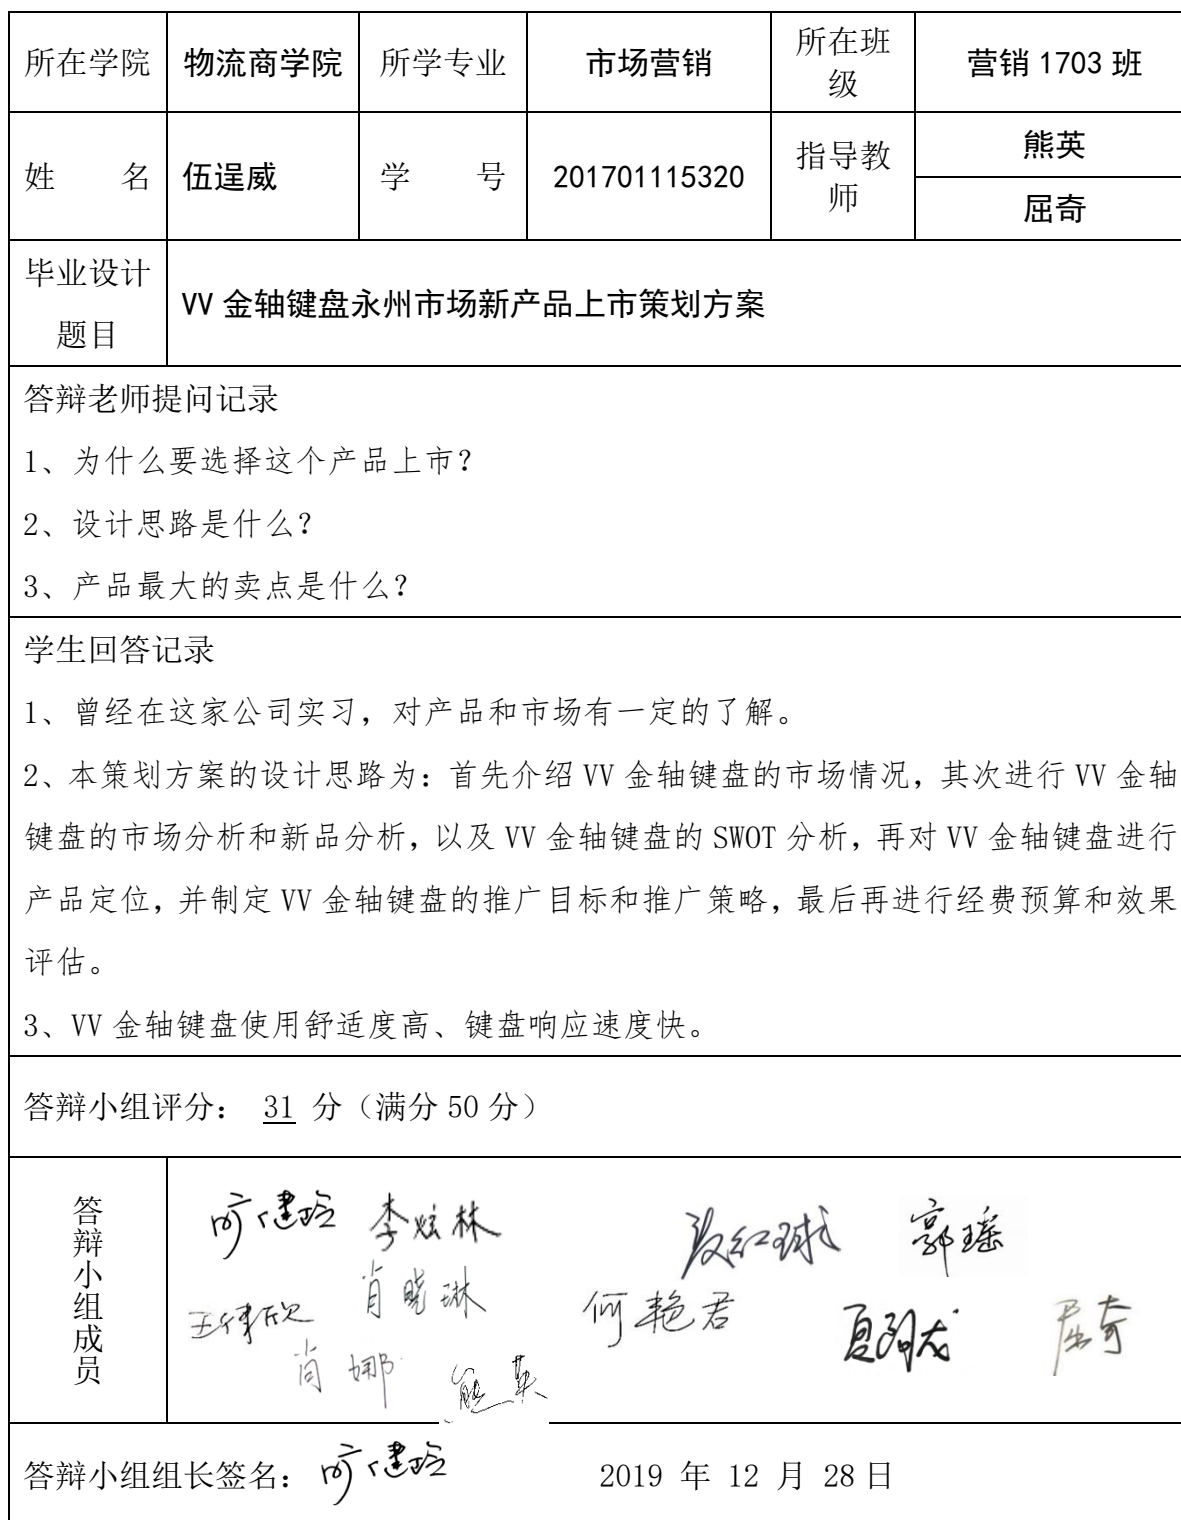 所在学院 物流商学院 所学专业 市场营销 所在班级 营销 1703 班
姓 名 伍逞威 学 号 201701115320 指导教师 熊英
屈奇
毕业设计
题目
VV 金轴键盘永州市场新产品上市策划方案
答辩老师提问记录
1、为什么要选择这个产品上市？
2、设计思路是什么？
3、产品最大的卖点是什么？
学生回答记录
1、曾经在这家公司实习，对产品和市场有一定的了解。
2、本策划方案的设计思路为：首先介绍 VV 金轴键盘的市场情况，其次进行 VV 金轴
键盘的市场分析和新品分析，以及 VV 金轴键盘的 SWOT 分析，再对 VV 金轴键盘进行
产品定位，并制定 VV 金轴键盘的推广目标和推广策略，最后再进行经费预算和效果
评估。
3、VV 金轴键盘使用舒适度高、键盘响应速度快。
答辩小组评分： 31 分（满分 50 分）
答辩小组成员
李炫林 郭瑶
肖晓琳 何艳君 屈奇
肖娜 熊英
答辩小组组长签名： 2019 年 12 月 28 日